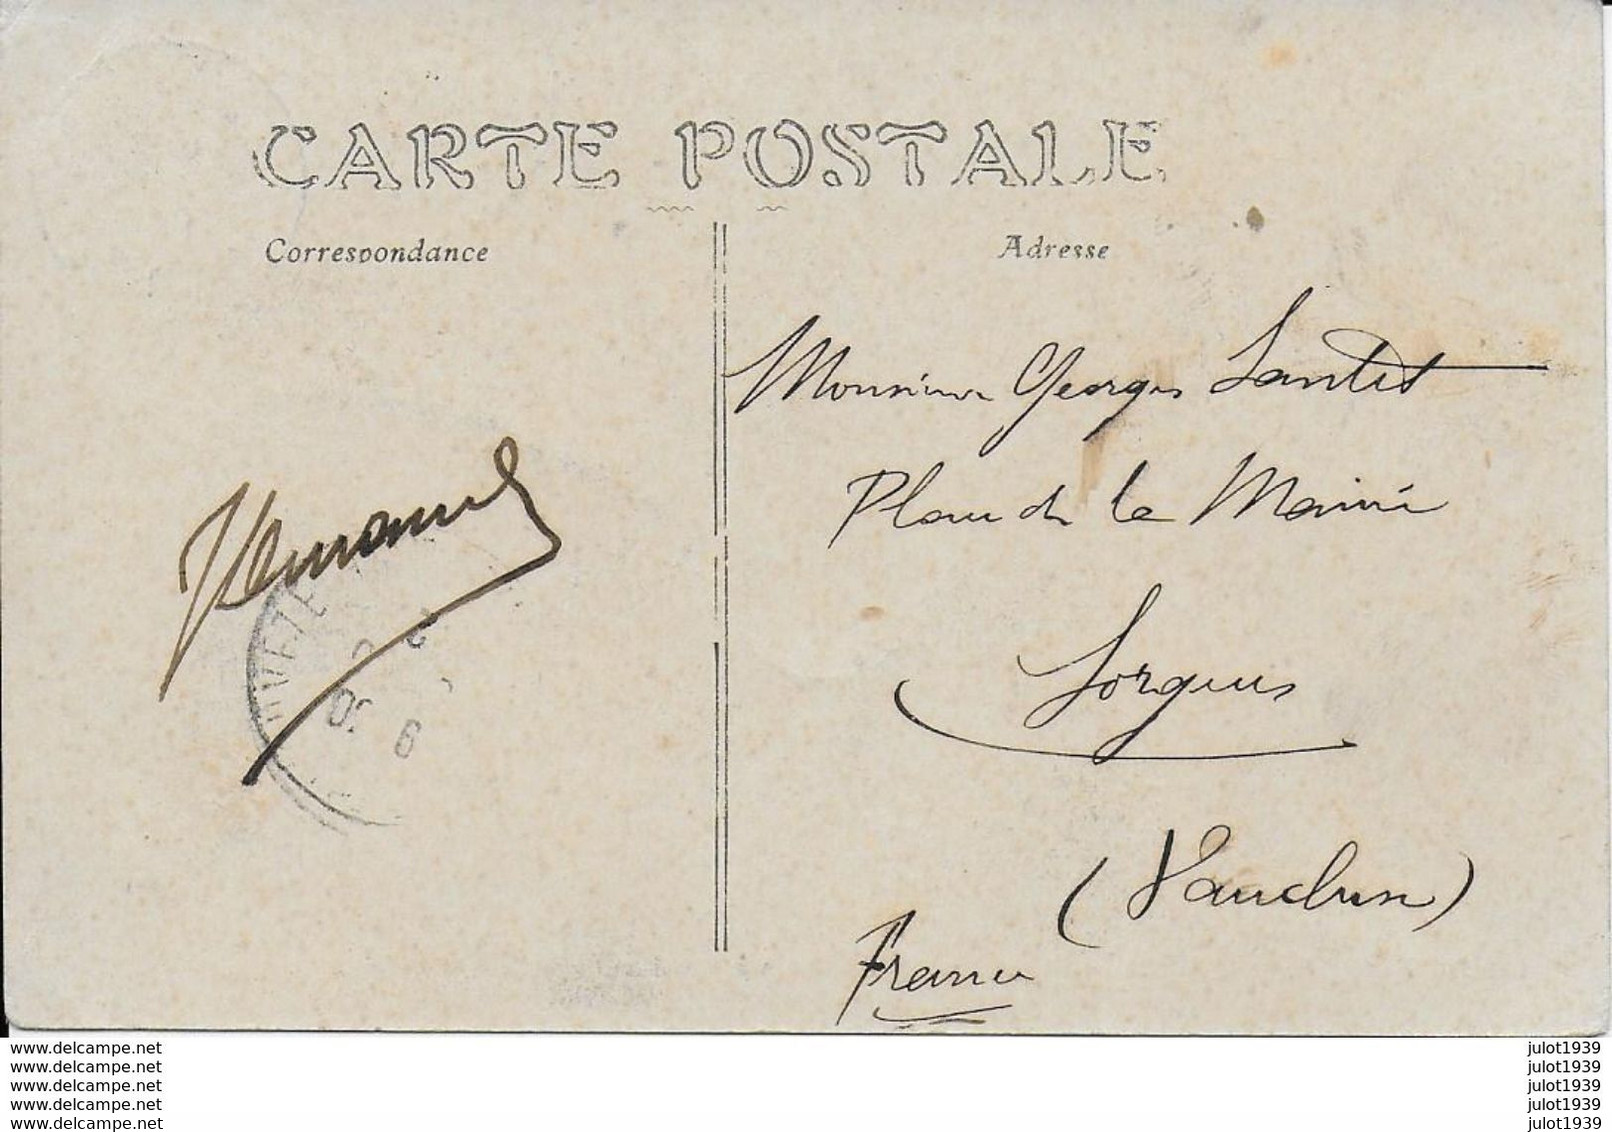 CARTE POSTALE
Correspondance
Adresse
Monsieur Georges
Place de la Mairie
Sorgues
(Vaucluse)
France
www.delcampe.net
www.delcampe.net
www.delcampe.net
www.delcampe.net
www.delcampe.net
julot1939
julot1939
julot1939
julot1939
julot1939